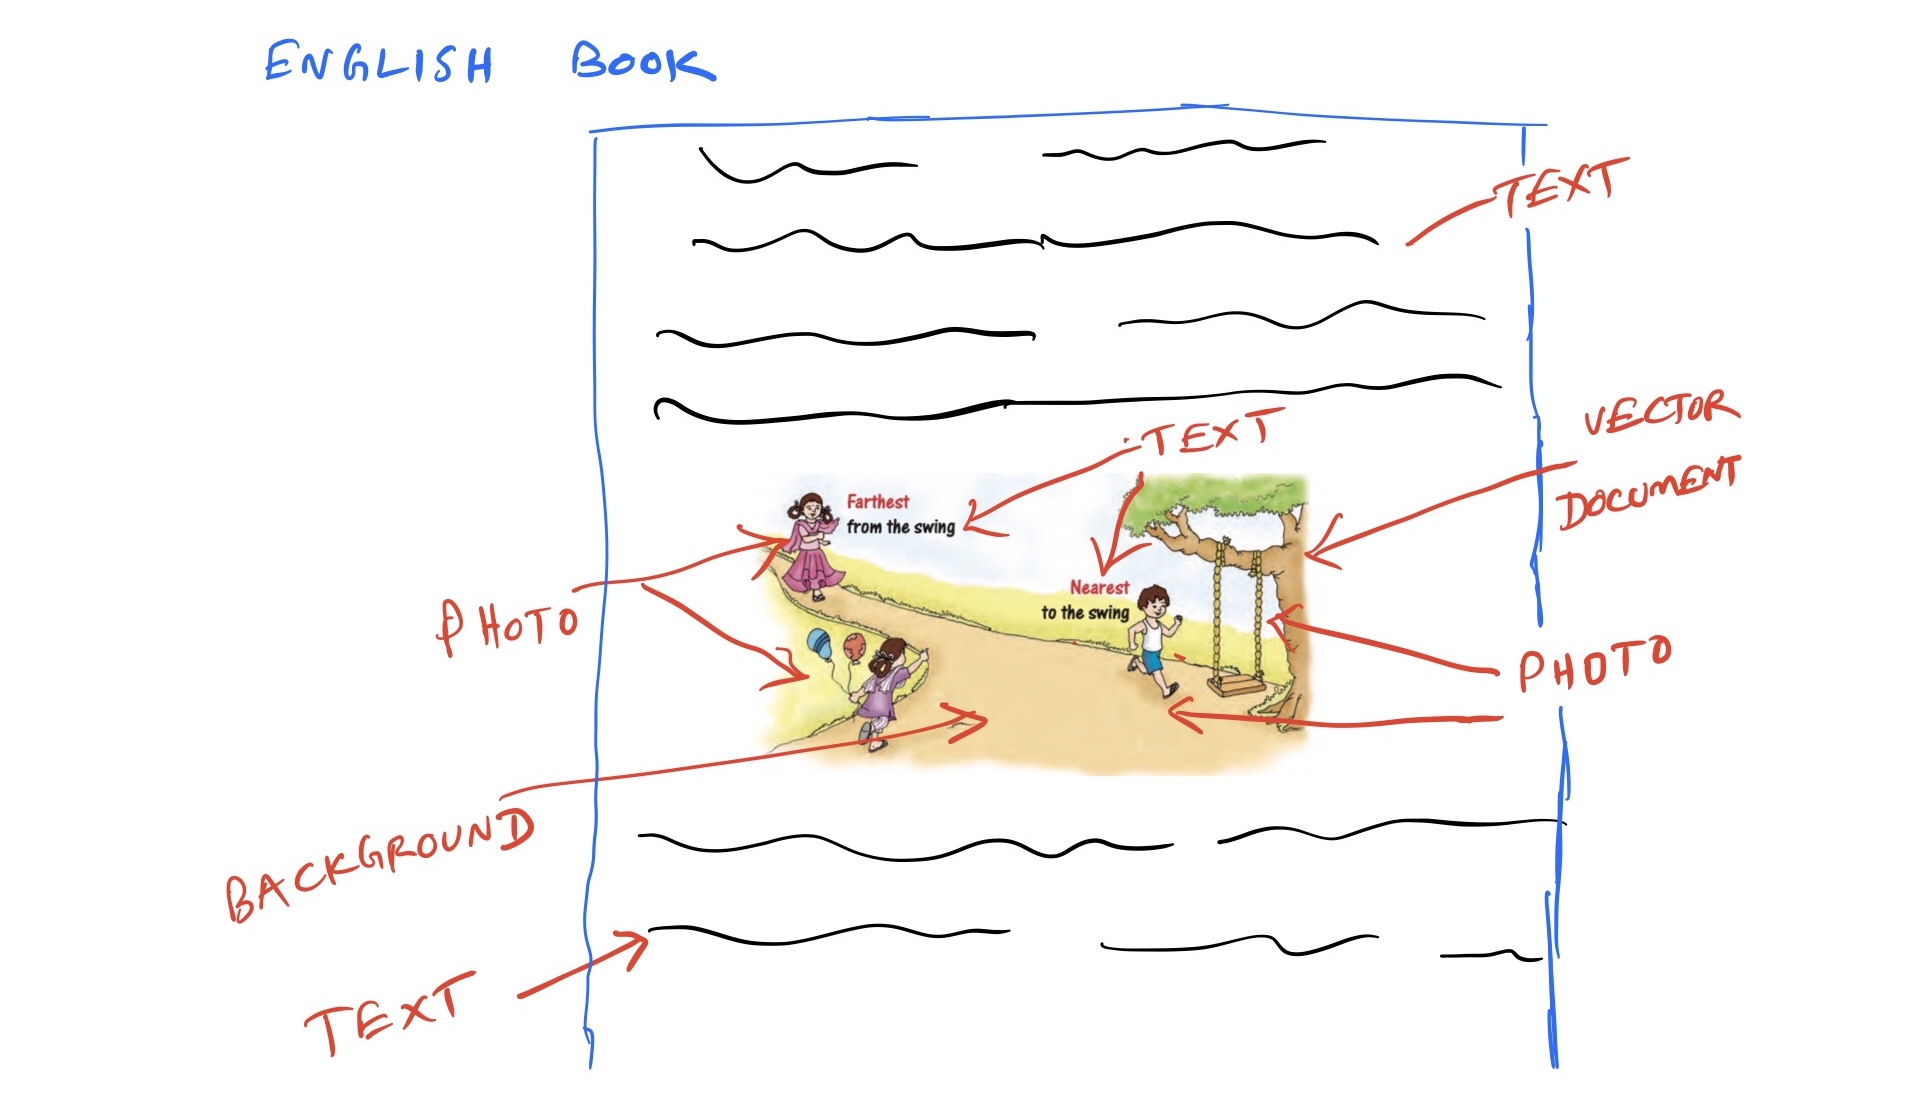 ENGLISH BOOK
TEXT
VECTOR
DOCUMENT
TEXT
Farthest
from the swing
Nearest
to the swing
PHOTO
PHOTO
BACKGROUND
TEXT